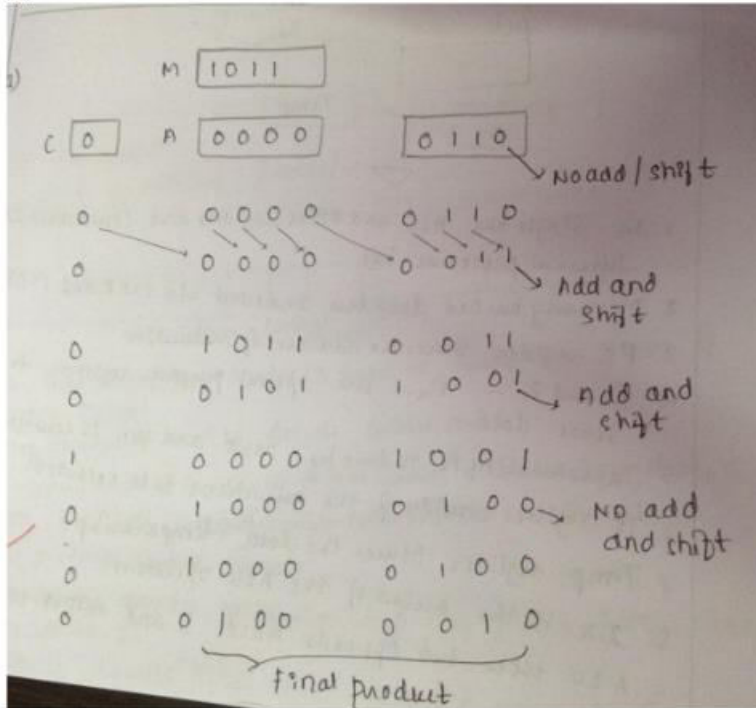 a)
M 1 0 1 1
C 0 A 0 0 0 0 0 1 1 0
No add / shift
0 0 0 0 0 0 1 1 0
0 0 0 0 0 0 0 1 1
Add and
shift
0 1 0 1 1 0 0 1 1
0 0 1 0 1 1 0 0 1
Add and
shift
1 0 0 0 0 1 0 0 1
0 1 0 0 0 0 1 0 0
NO add
and shift
0 1 0 0 0 0 1 0 0
0 0 1 0 0 0 0 1 0
Final product